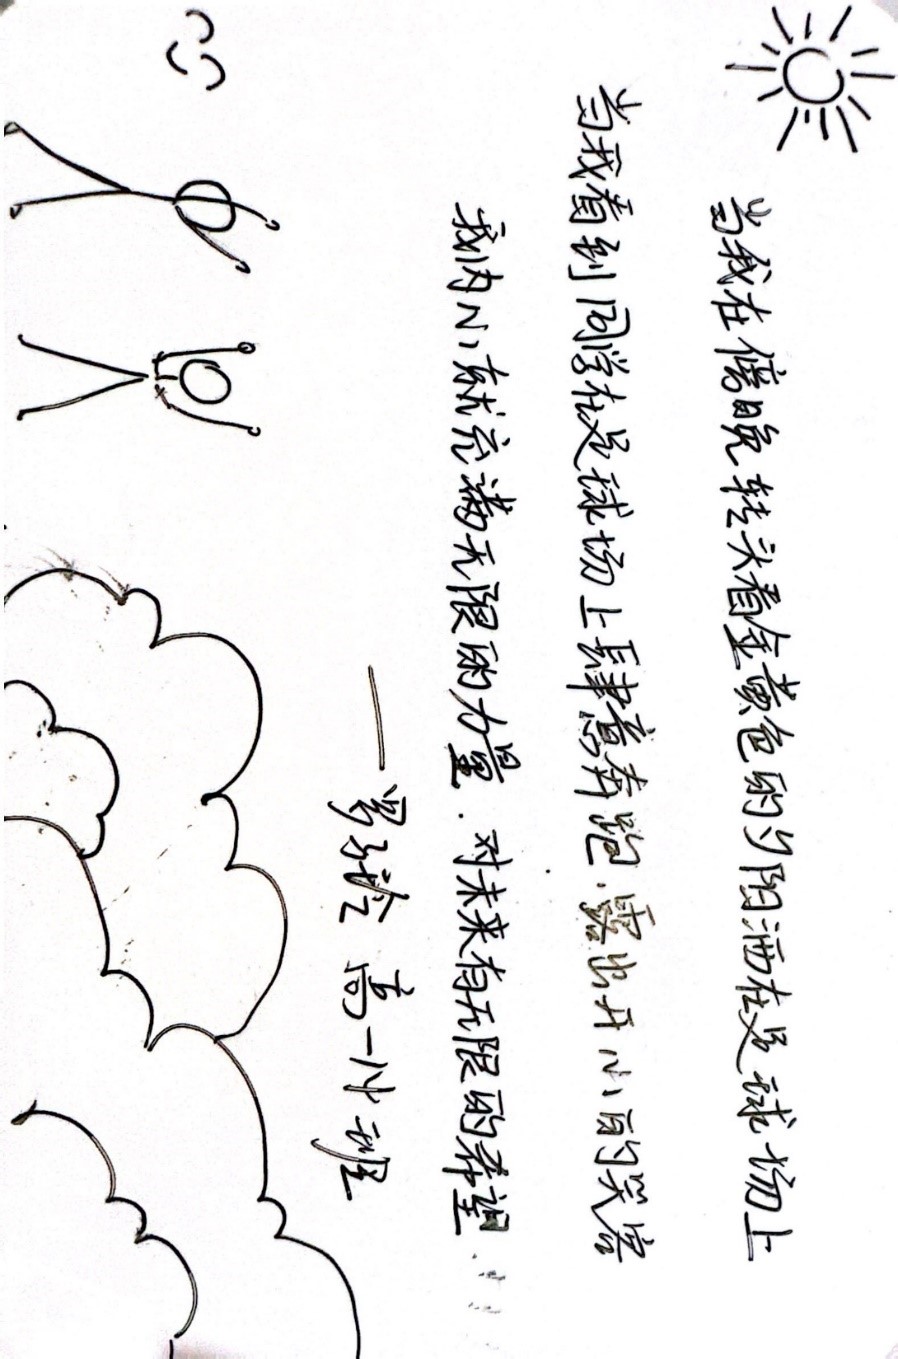 当我在傍晚转头看金黄色的夕阳洒在足球场上
当我看到同学在足球场上肆意奔跑.露出开心的笑容
我内心就充满无限的力量.对未来有无限的希望.
高一 班